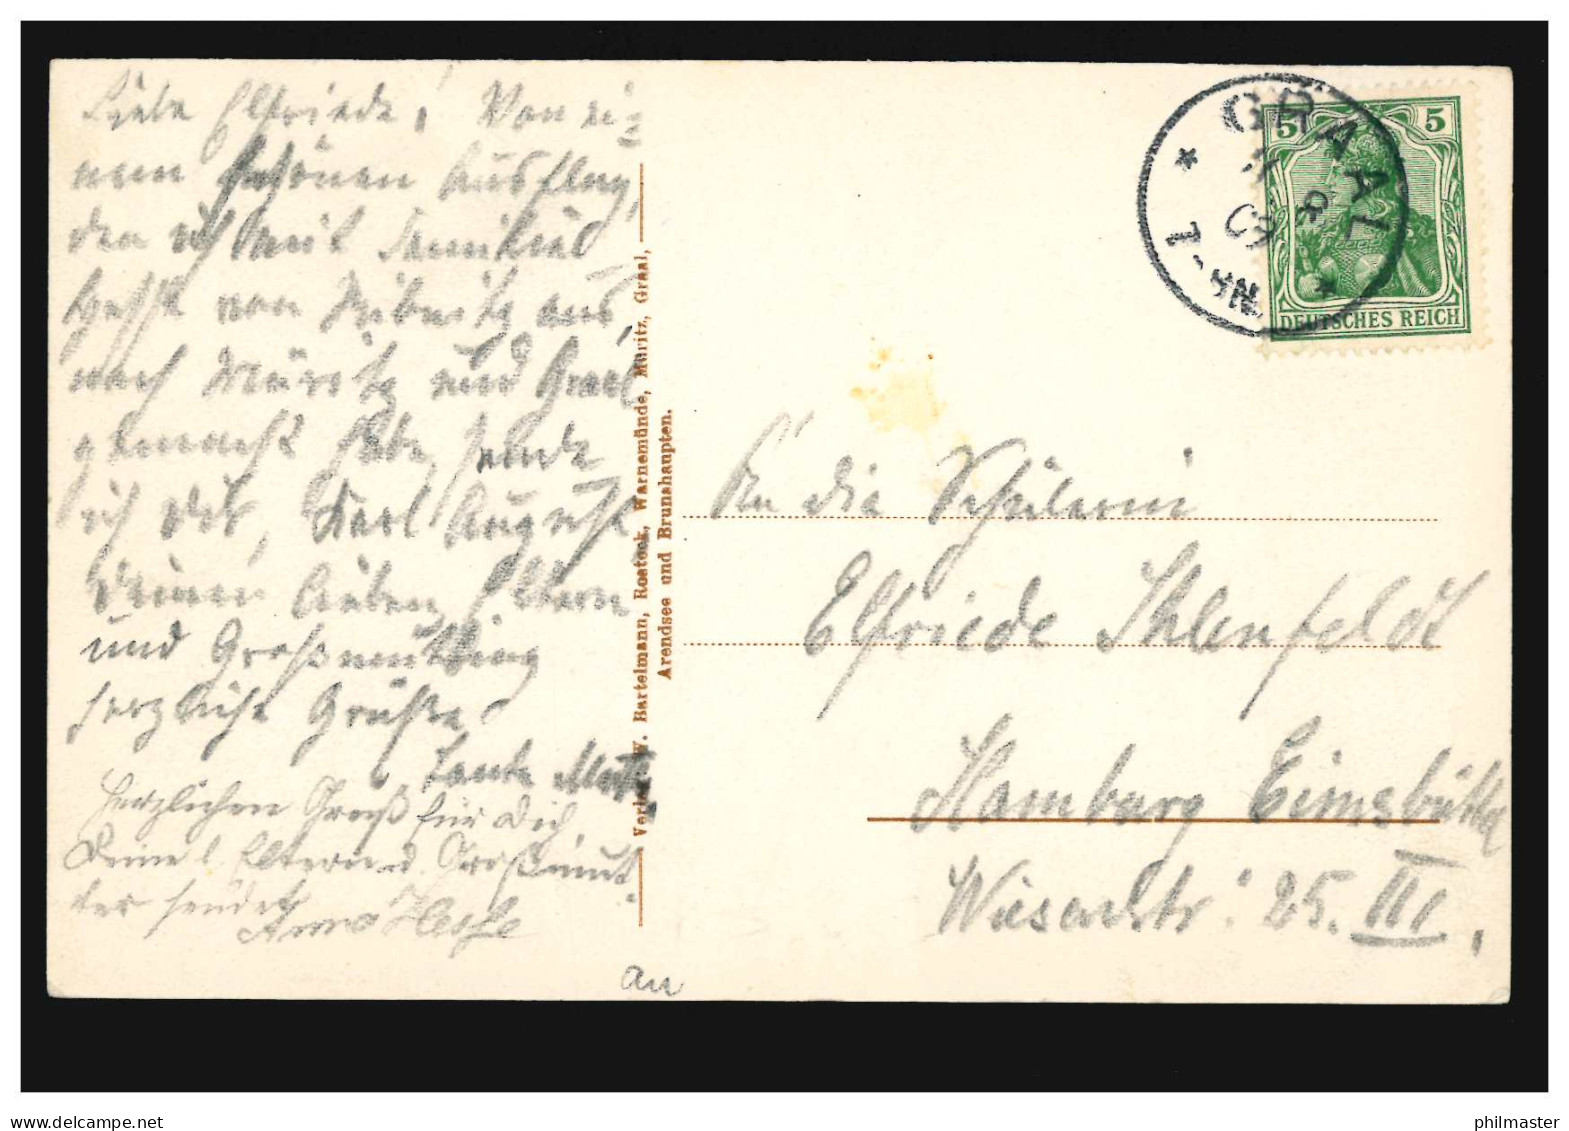 Liebe Elfriede! Von ei-
nem schönen Ausflug,
den ich mit Familie
Hesse von Ribnitz aus
nach Müritz und Graal
gemacht habe, sende
ich Dir, Karl August
Deinen lieben Eltern
und Großmutting
herzliche Grüße
Tante
Herzlichen Gruß für Dich,
Deine l. Eltern u. Großmut-
ter sendet
Anna Hesse
an
Verlag W. Bartelmann, Rostock, Warnemünde, Müritz, Graal,
Arendsee und Brunshaupten.
GRAAL
5 5
DEUTSCHES REICH
An die Schülerin
Elfriede Ihlenfeldt
Hamburg Eimsbüttel
Wiesenstr: 25. III,
hippostcard.com
philmaster